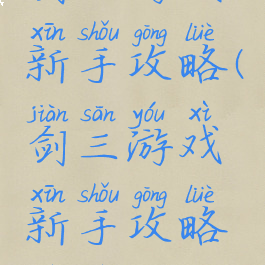 xīn shǒu gōng lüè
新手攻略(
jiàn sān yóu xì
剑三游戏
xīn shǒu gōng lüè
新手攻略